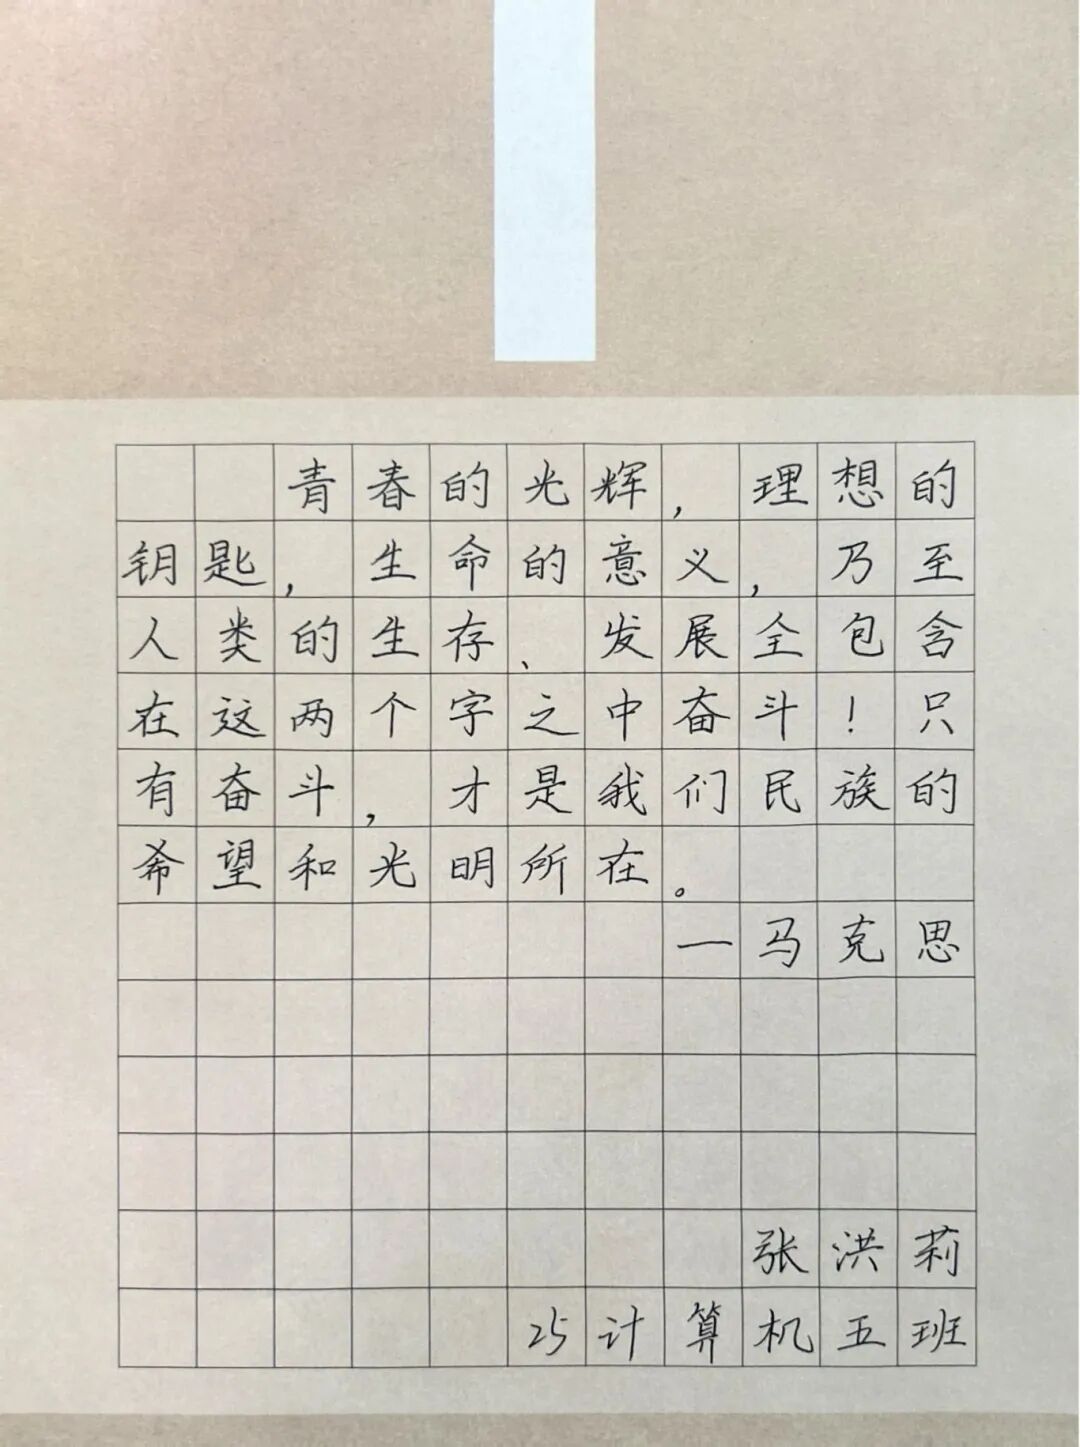 青春的光辉，理想的
钥匙，生命的意义，乃至
人类的生存、发展全包含
在这两个字之中奋斗！只
有奋斗，才是我们民族的
希望和光明所在。
—马克思
张洪莉
25计算机五班